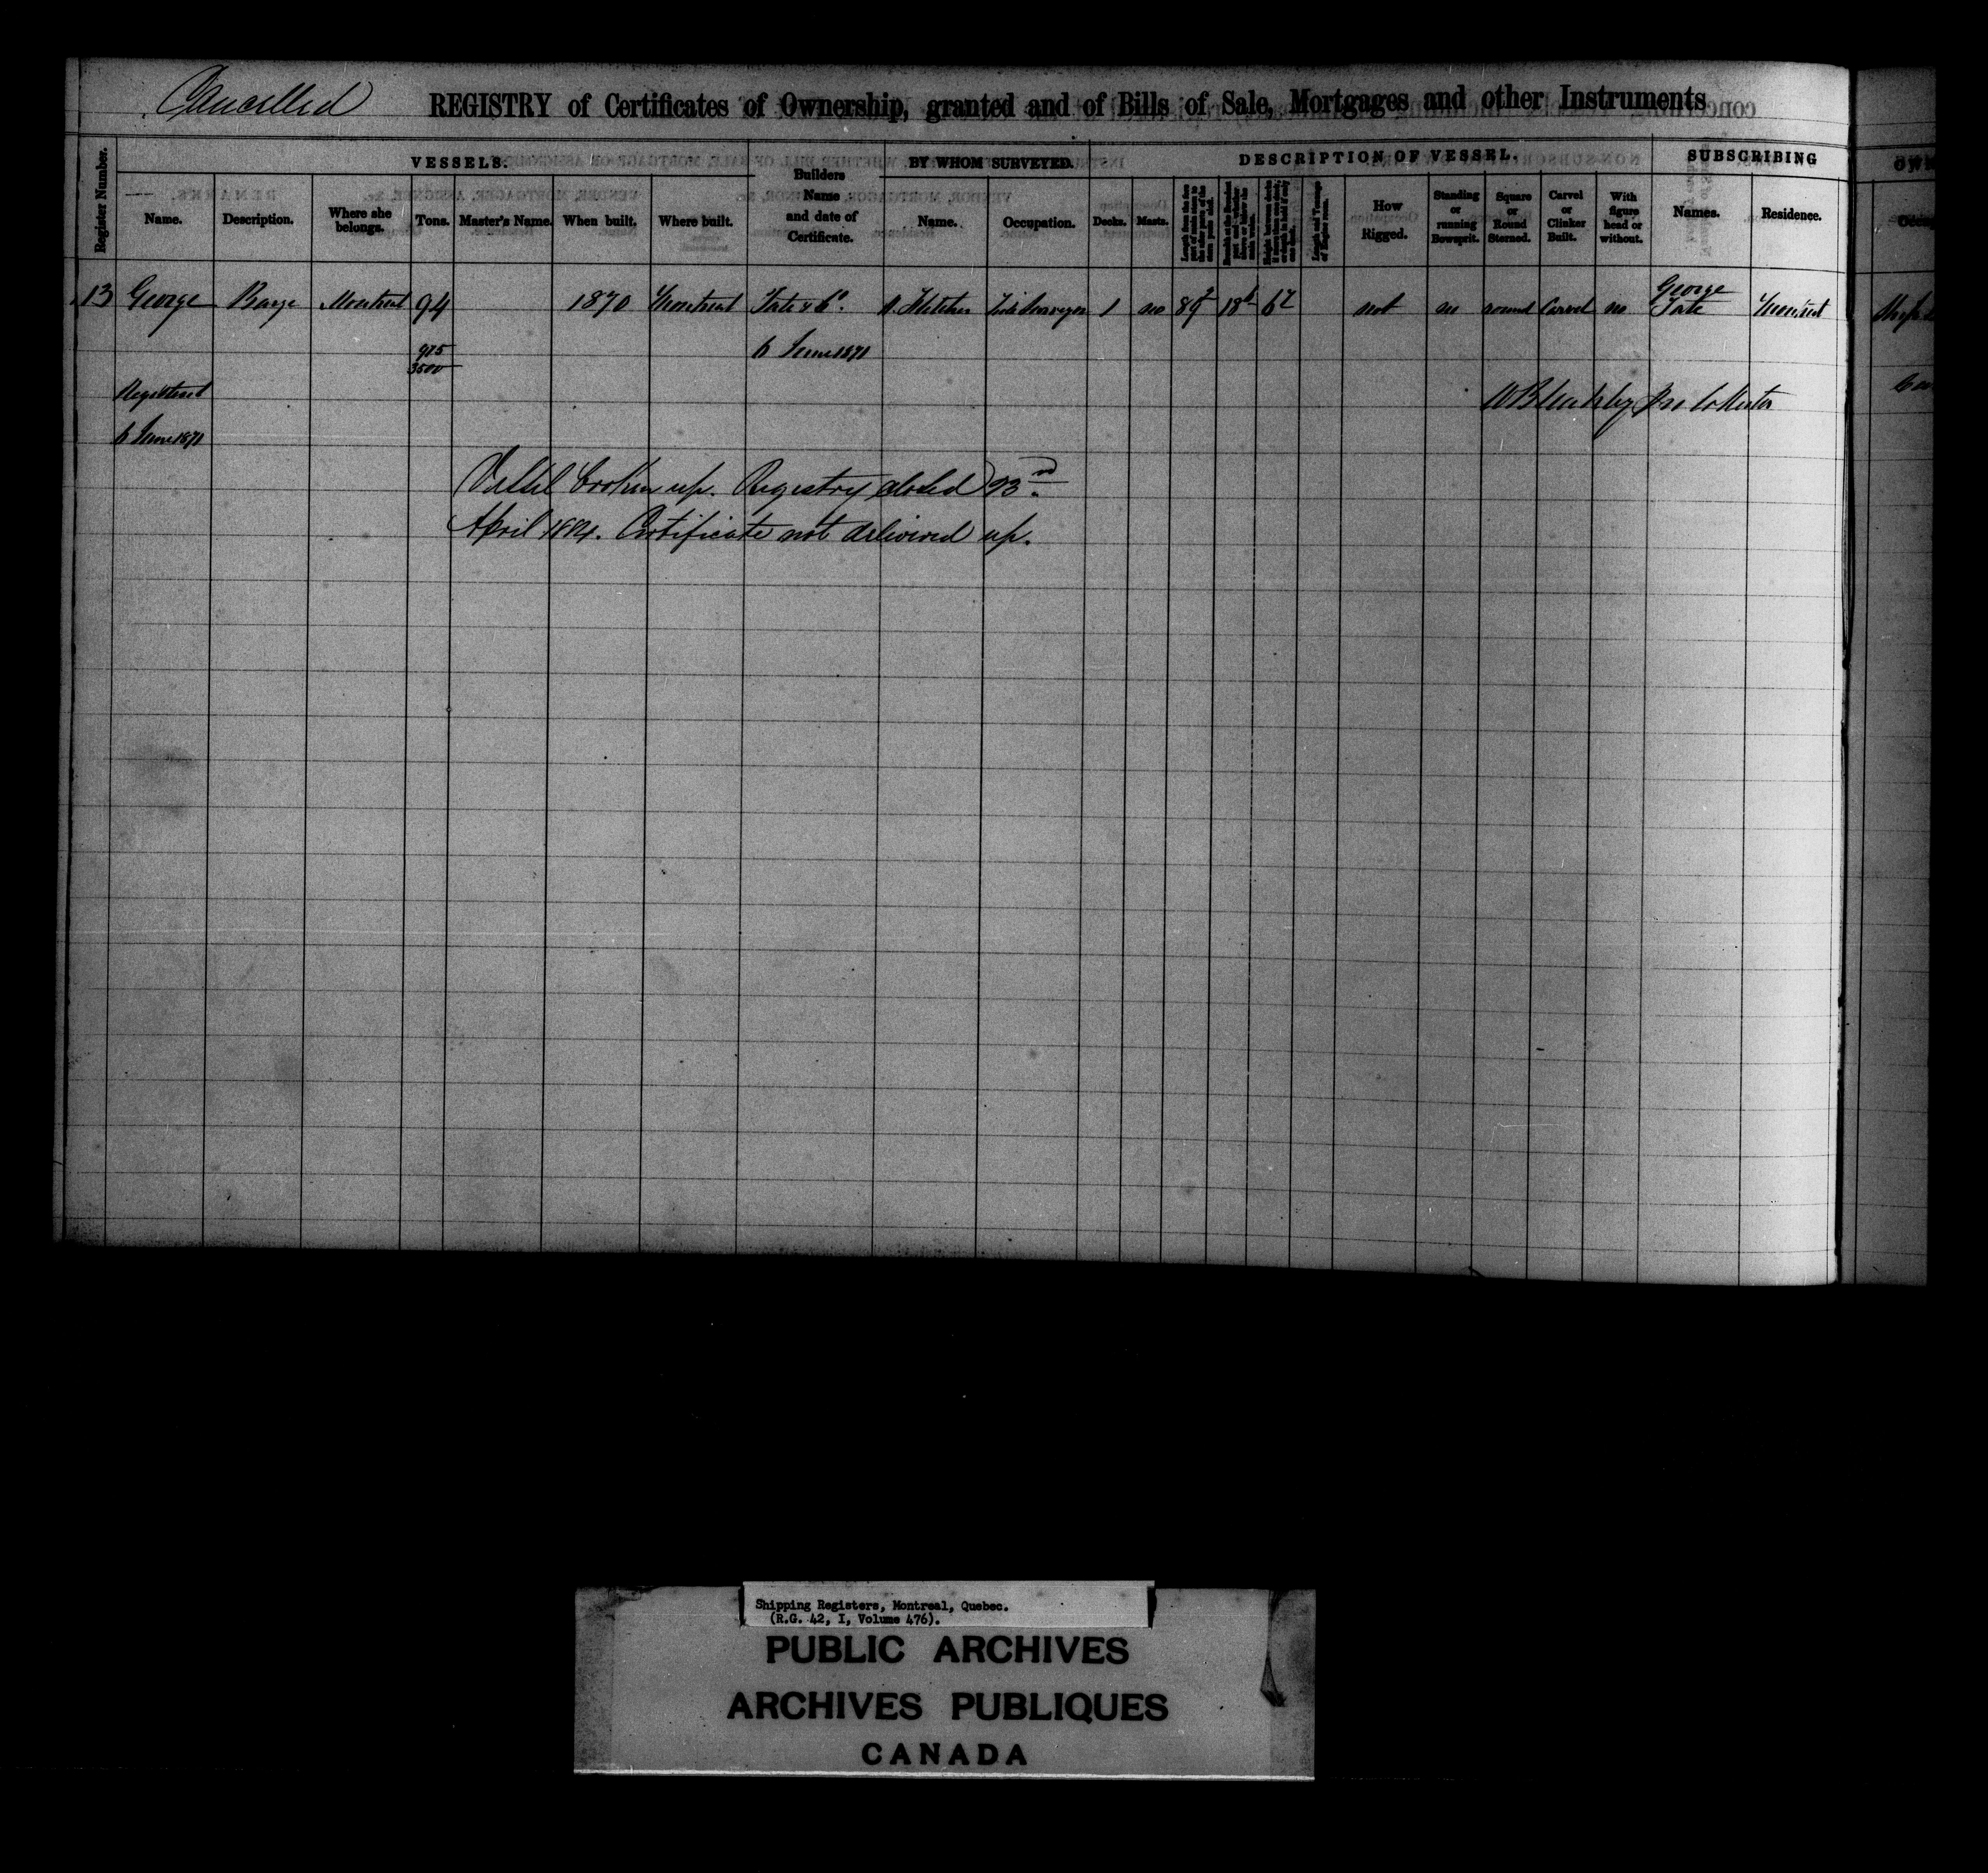 Cancelled
REGISTRY of Certificates of Ownership, granted and of Bills of Sale, Mortgages and other Instruments
Register Number.
VESSELS.
Builders Name and date of Certificate.
BY WHOM SURVEYED.
DESCRIPTION OF VESSEL.
SUBSCRIBING
Name. Description. Where she belongs. Tons. Master's Name. When built. Where built. Name. Occupation. Decks. Masts. How Rigged. Standing or running Bowsprit. Square or Round Sterned. Carvel or Clinker Built. With figure head or without. Names. Residence.
13 George Barge Montreal 94 1870 Montreal Tate & Co. Surveyor 1 no 89 18 6 not no round Carvel no George Tate Montreal
975/3500 6 June 1871
Registered
6 June 1871
Vessel broken up. Registry closed 23rd
April 1884. Certificate not delivered up.
Shipping Registers, Montreal, Quebec.
(R.G. 42, I, Volume 476).
PUBLIC ARCHIVES
ARCHIVES PUBLIQUES
CANADA